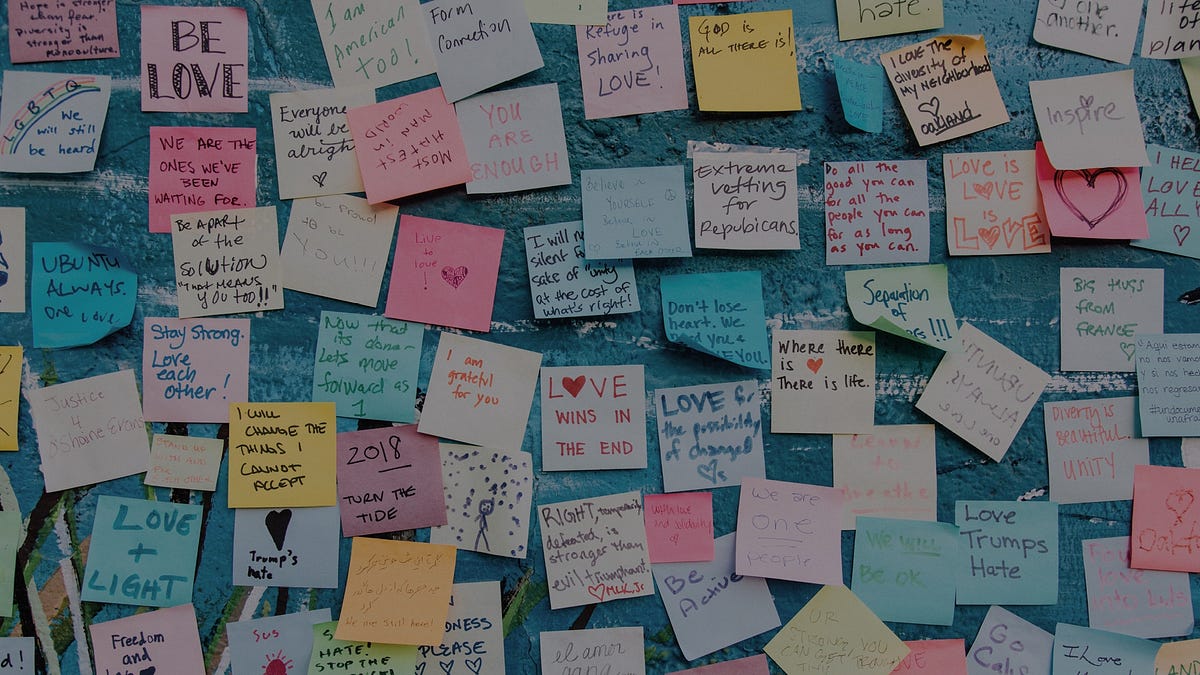 Hope is
stronger
than fear.
Diversity is
stronger than
monoculture.
BE
LOVE
I am
American
too!
Form
Connection
Refuge in
Sharing
LOVE!
GOD is
ALL THERE is!
hate.
one
another.
I LOVE THE
diversity OF
MY NEIGHBORHOOD
oakLAND
LGBTQ
We
will still
be heard
Everyone
will be
alright
MOST
HATEST
MAN IN
WORLD
YOU
ARE
ENOUGH
Inspire
WE ARE THE
ONES WE'VE
BEEN
WAITING FOR.
Believe in
YOURSELF
Believe in
LOVE
Believe in
Extreme
vetting
for
Repubicans.
Do all the
good you can
for all the
people you can
for as long
as you can.
LOVE IS
LOVE
IS
LOVE
LOVE
ALL
BE APART
of the
SOLUTION
"THAT MEANS
YOU TOO!!"
be proud
to be
You!!!
Live
to
love!
I will not
silent for
sake of "unity"
at the cost of
what's right!
UBUNTU
ALWAYS.
One Love.
Don't lose
heart. We
YOU.
Separation
of
!!!
BIG HUGS
FROM
FRANCE
Stay Strong.
Love
each
other!
Now that
its done-
Lets move
forward as
1
I am
grateful
for you
Where there
is
There is life.
UBUNTU
ALWAYS
one love
"Aqui estam
no nos vamo
Y si nos hec
nos regresa
#undocum
unafra
Justice
4
LOVE
WINS IN
THE END
LOVE for
the possibility
of change
Diverty is
beautiful.
UNITY
STAND UP
WITH AND
FOR
I WILL
CHANGE THE
THINGS I
CANNOT
ACCEPT
2018
TURN THE
TIDE
Trump's
hate
LOVE
+
LIGHT
RIGHT, temporarily
defeated, is
stronger than
evil triumphant.
MLK, Jr.
with love
and solidarity
We are
one
people
We WILL
Be OK
Love
Trumps
Hate
Be
Active
We are still here!
Freedom
and
SUS
HATE!
STOP THE
PLEASE
el amor
gana
Go
Cals
I Love